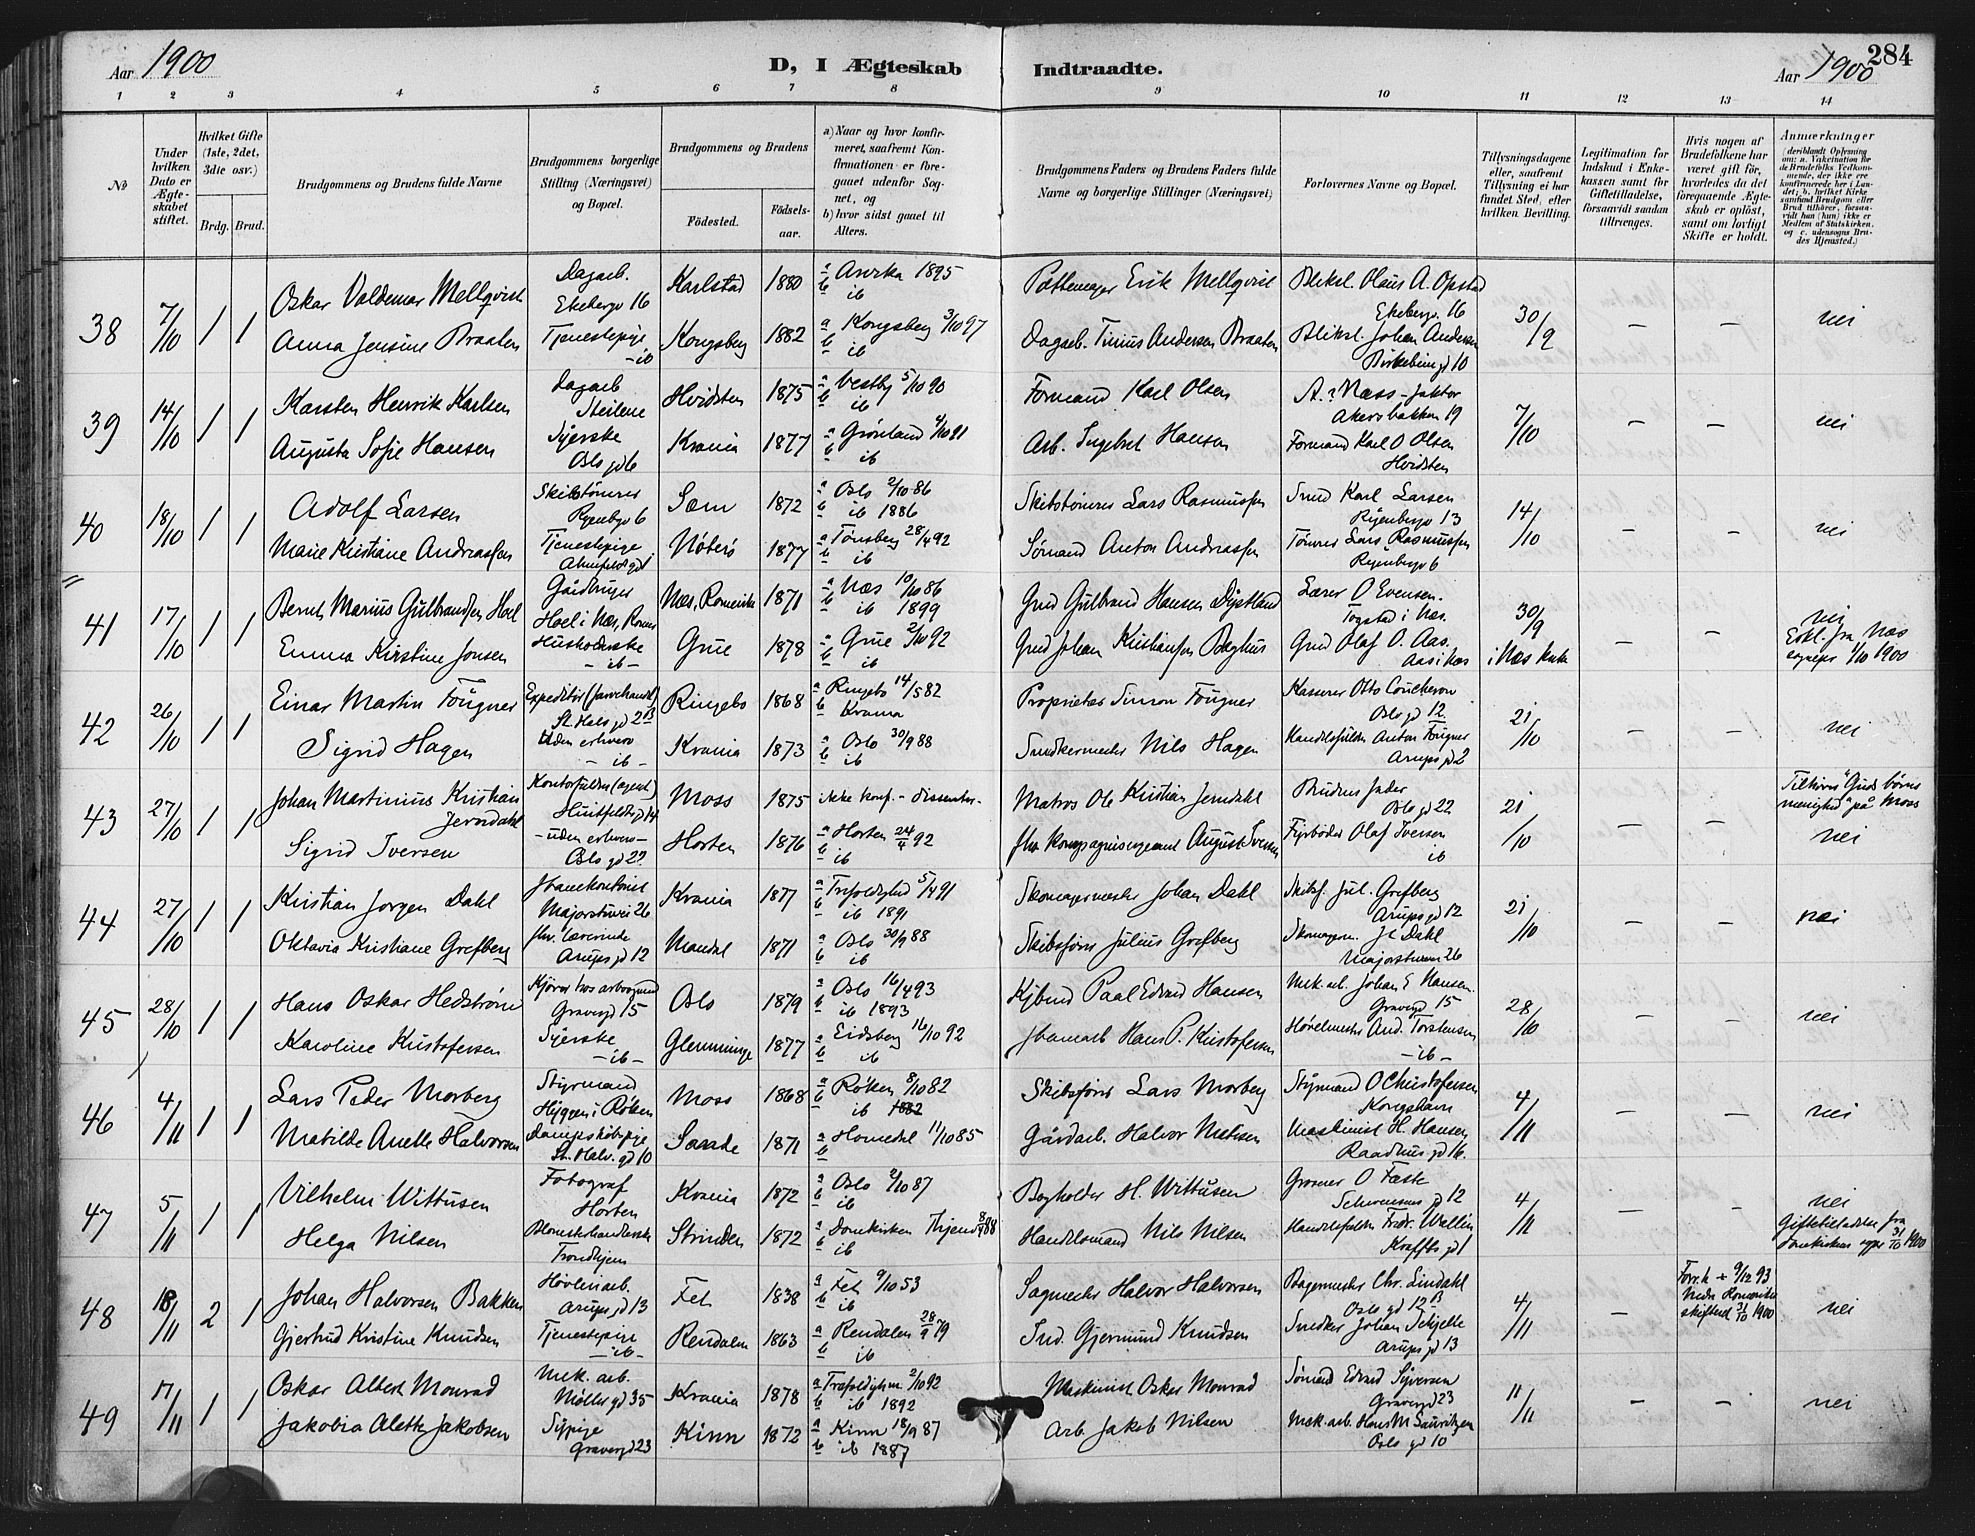 284
Aar 1900 D, I Ægteskab Indtraadte. Aar 1900
1 2 3 4 5 6 7 8 9 10 11 12 13 14
№
Under hvilken Dato er Ægteskabet stiftet.
Hvilket Gifte (1ste, 2det, 3die osv.)
Brdg. Brud.
Brudgommens og Brudens fulde Navne
Brudgommens borgerlige Stilling (Næringsvei) og Bopæl.
Brudgommens og Brudens
Födested. Födsels-aar.
a) Naar og hvor konfirmeret, saafremt Konfirmationen er foregaaet udenfor Sognet, og
b) hvor sidst gaaet til Alters.
Brudgommens Faders og Brudens Faders fulde Navne og borgerlige Stillinger (Næringsvei)
Forlovernes Navne og Bopæl.
Tillysningsdagene eller, saafremt Tillysning ei har fundet Sted, efter hvilken Bevilling.
Legitimation for Indskud i Enkekassen samt for Giftetilladelse, forsaavidt saadan tiltrænges.
Hvis nogen af Brudefolkene har været gift för, hvorledes da det foregaaende Ægteskab er oplöst, samt om lovligt Skifte er holdt.
Anmærkninger
38 7/10 1 1 Oskar Valdemar Mellqvist Dagarb. Ekebergv 16 Karlstad 1880 a Arvika 1895 b ib Pottemager Erik Mellqvist Bliksl. Olaus A. Opstad Ekebergv. 16 30/9 — — nei
Anna Jensine Braaten Tjenestepige - ib Kongsberg 1882 a Kongsberg 3/10 97 b ib Dagarb. Tinius Andersen Braaten Bliksl. Johan Andersen Birkebeingd 10
39 14/10 1 1 Karsten Henrik Karlsen Dagarb Steilene Hvidsten 1875 a Vestby 5/10 90 b ib Formand Karl Olsen Næss - faktor Akersbakken 19 7/10 — — nei
Augusta Sofie Hansen Syerske Oslo gd 6 Krania 1877 a Grönland 4/10 91 b ib Arb. Ingebret Hansen Formand Karl O Olsen Hvidsten
40 18/10 1 1 Adolf Larsen Skibstömrer Ryenbgv 6 Sem 1872 a Oslo 2/10 86 b ib 1886 Skibstömrer Lars Rasmussen Smed Karl Larsen Ryenbergv 13 14/10 — — nei
Marie Kristiane Andreassen Tjenestepige Nöterö 1877 a Tönsberg 28/4 92 b ib Sömand Anton Andreassen Tömrer Lars Rasmussen Ryenbergv 6
41 17/10 1 1 Bernt Marius Gulbrandsen Hoel Gårdbruger Hoel i Næs, Romer Næs, Romerike 1871 a Næs 10/10 86 b ib 1899 Grd Gulbrand Hansen Dystland Lærer O Evensen. Togstad i Næs. 30/9 i Næs kirke — — nei
Emma Kirstine Jonsen Husholderske - ib - Grue 1878 a Grue 2/10 92 b ib Grd Johan Kristiansen Berghus Grd Olaf O. Aas. Aas i Næs Erkl. fra Næs sognepr 1/10 1900
42 26/10 1 1 Einar Martin Föugner Expeditör (farvehandel) St. Halv gd 2 B Ringebo 1868 a Ringebo 14/5 82 b Krania Proprietær Simon Fougner Kasserer Otto Coucheron Oslo gd 12 21/10 — — nei
Sigrid Hagen Uden erhverv - ib - Krania 1873 a Oslo 30/9 88 b ib Snedkermester Nils Hagen Handelsfuldm Anton Fougner Arups gd 2
43 27/10 1 1 Johan Martinius Kristian Jerndahl Kontorfuldm (agent) Huitfeldts gd 14 Moss 1875 ikke konf. - dissenter - Matros Ole Kristian Jerndahl Brudens fader Oslo gd 22 21/10 — — Tilhører "Guds børns menighed" på Moss
Sigrid Iversen - uden erhverv - Oslo gd 22 Horten 1876 a Horten 24/4 92 b ib August Iversen Fyrböder Olaf Iversen ib nei
44 27/10 1 1 Kristian Jorgen Dahl Majorstuvei 26 Krania 1877 a Trefoldighed 5/4 91 b ib 1891 Skomagermester Johan Dahl Skibsf. Jul. Grefberg Arups gd 12 21/10 — — nei
Oktavia Kristiane Grefberg fhv. lærerinde Arups gd 12 Mandal 1871 a Oslo 30/9 88 b ib Skibsförer Julius Grefberg Skomagerm. J. Dahl Majorstuvei 26
45 28/10 1 1 Hans Oskar Hedström Gravergd 15 Oslo 1879 a Oslo 16/4 93 b ib 1893 Kjbmd Paal Edvard Hansen Mek. arb. Johan E Hansen. Gravergd 15 28/10 — — nei
Karoline Kristofersen Syerske - ib - Glemminge 1877 a Eidsberg 16/10 92 b ib Hans P. Kristofersen Hövelmester And. Torstensen - ib -
46 4/11 1 1 Lars Peder Morberg Styrmand Hyggen i Röken Moss 1868 a Röken 8/10 82 b ib 1882 Skibsförer Lars Morberg Styrmand O Christofersen Kongshavn 4/11 — — nei
Matilde Anette Halvorsen Dampskibspige St. Halv. gd 10 Sande 1871 a Homedal 11/10 85 b Gårdarb. Halvor Nielsen Maskinist H. Hansen Raadhus gd 16.
47 5/11 1 1 Vilhelm Wittusen Fotograf Horten Krania 1872 a Oslo 2/10 87 b ib Bogholder H. Wittusen Grosserer O Fæste Schwensens gd 12 4/11 — — nei
Helga Nilsen Blomsterhandlerske Trondhjem Strinden 1872 a Domkirken Thjem 8/4 88 b ib Handelsmand Nils Nilsen Handelsfuldm Fredr. Wallin Kraffts gd 1 Giftetilladelse fra Domkirkens sognepr 31/10 1900
48 18/11 2 1 Johan Halvorsen Bakken Hövleriarb. Arups gd 13 Fet 1838 a Fet 9/10 53 b ib Sagmester Halvor Halvorsen Bagermester Chr. Lindahl Oslo gd 12 B 4/11 — Forr. h + 9/12 93 Nedre Romerike skifteret 31/10 1900 nei
Gjertrud Kristine Knudsen Tjenestepige - ib - Rendalen 1863 a Rendalen 28/9 79 b ib Smd. Gjermund Knudsen Snedker Johan Schjelle Arups gd 13
49 17/11 1 1 Oskar Albert Monrad Mek. arb. Möllergd 35 Krania 1878 a Trefoldighed 2/10 92 b ib 1892 Maskinist Oskar Monrad Sömand Edvard Syversen Gravergd 23 11/11 — — nei
Jakobia Alette Jakobsen Sypige Gravergd 23 Kinn 1872 a Kinn 18/9 87 b ib 1887 Arb. Jakob Nilsen Mek. arb. Hans M Lauritzen Oslo gd 10